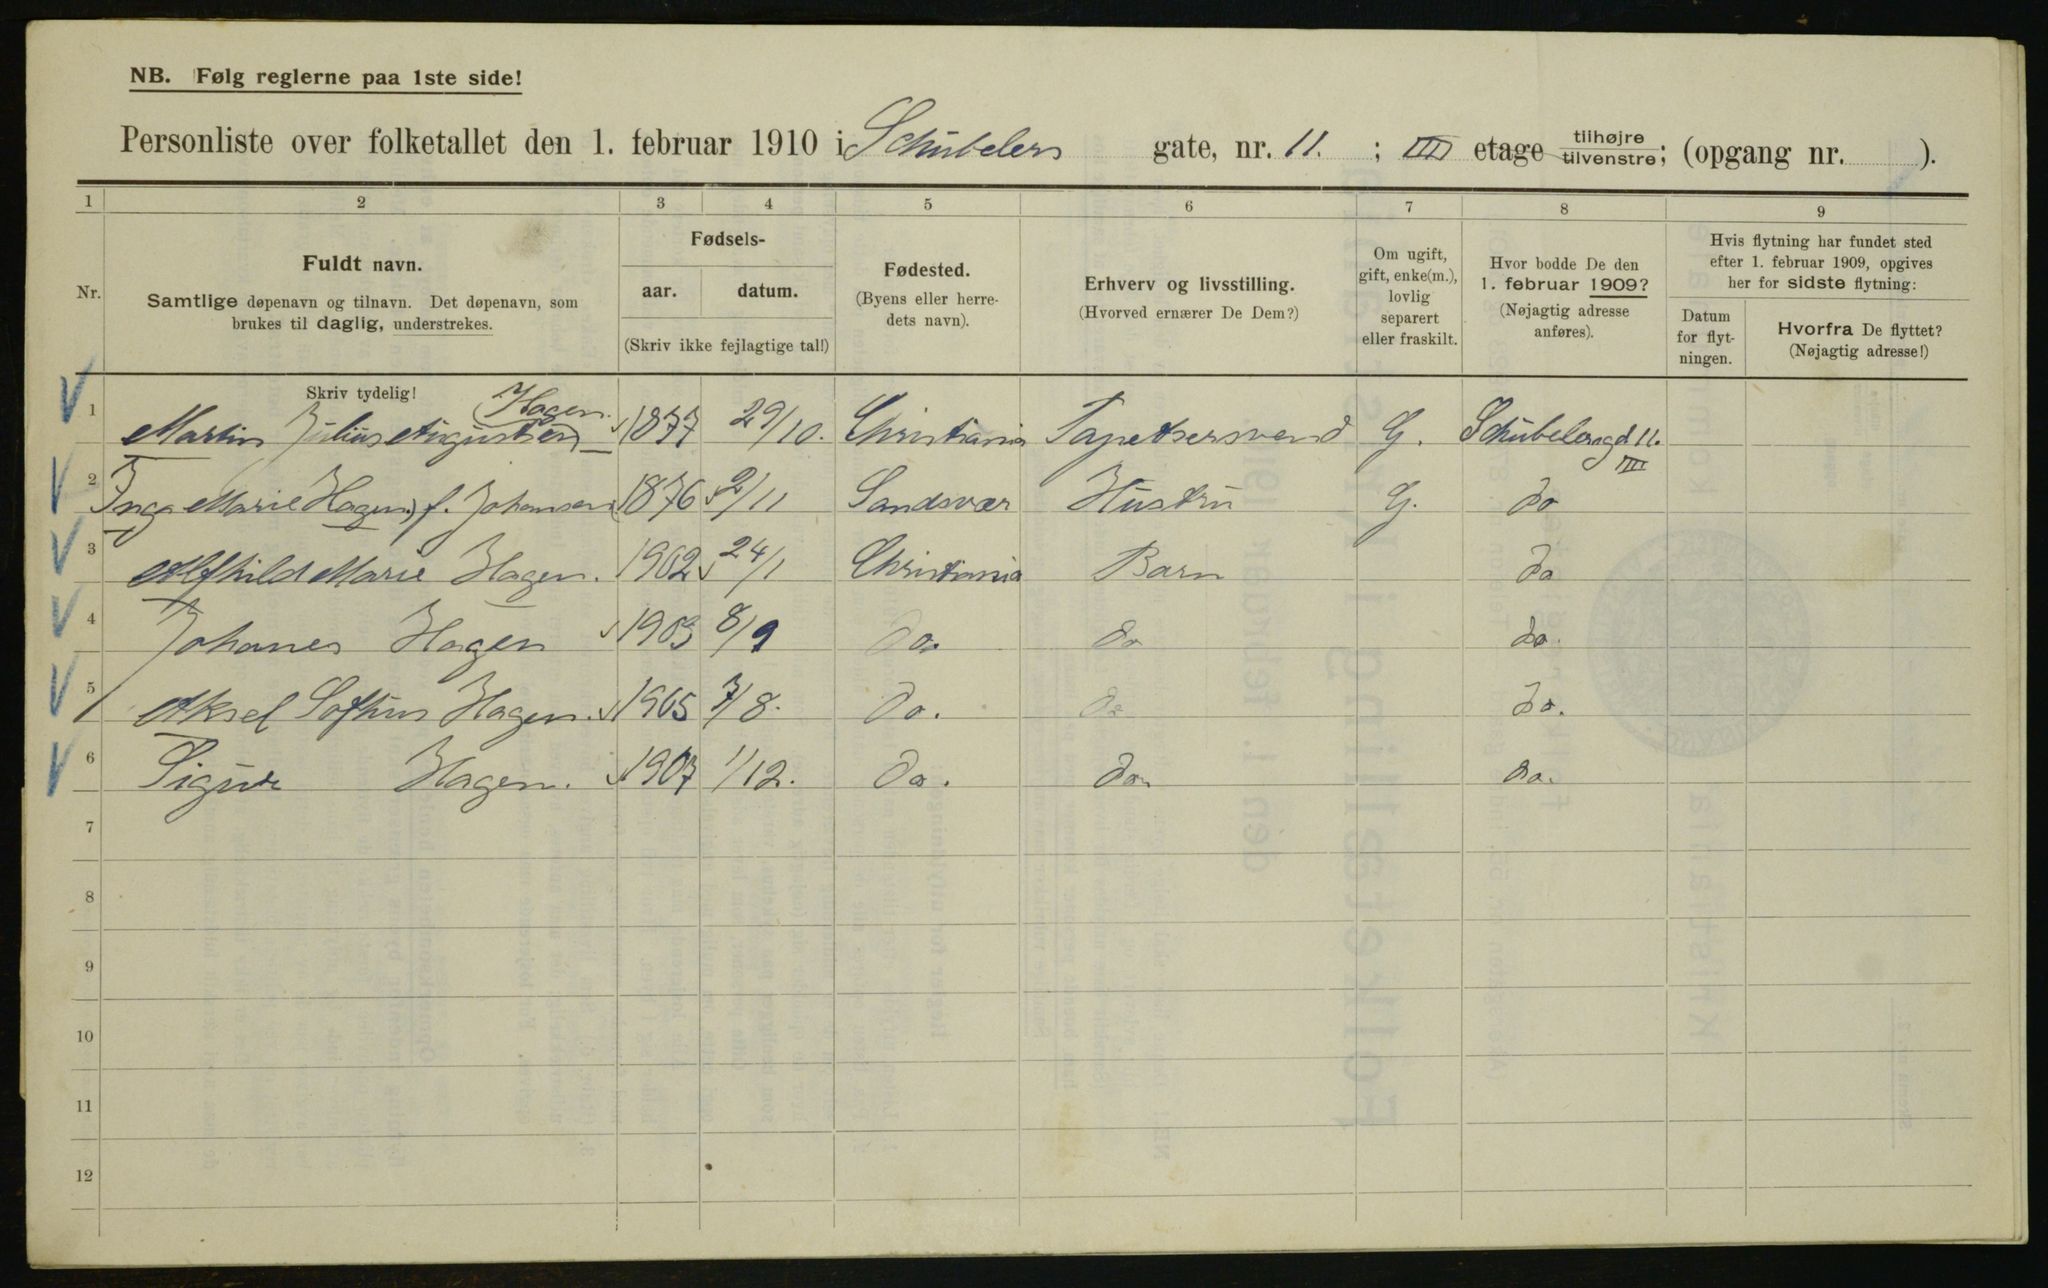 NB. Følg reglerne paa 1ste side!
Personliste over folketallet den 1. februar 1910 i Schübelers gate, nr. 11. ; III etage tilhøjre tilvenstre; (opgang nr. ).
1 2 3 4 5 6 7 8 9
Nr.
Fuldt navn.
Samtlige døpenavn og tilnavn. Det døpenavn, som
brukes til daglig, understrekes.
Fødsels-
aar. datum.
(Skriv ikke fejlagtige tal!)
Fødested.
(Byens eller herre-
dets navn).
Erhverv og livsstilling.
(Hvorved ernærer De Dem?)
Om ugift,
gift, enke(m.),
lovlig
separert
eller fraskilt.
Hvor bodde De den
1. februar 1909?
(Nøjagtig adresse
anføres).
Hvis flytning har fundet sted
efter 1. februar 1909, opgives
her for sidste flytning:
Datum
for flyt-
ningen.
Hvorfra De flyttet?
(Nøjagtig adresse!)
Skriv tydelig!
Hagen.
1 Martin Julius Augustsen 1877 29/10. Christiania Tapetsersvend G. Schübelersgd 11. III
2 Inga Marie Hagen) f. Johansen 1876 2/11 Sandsvær Hustru G. do
3 Alfhild Marie Hagen. 1902 24/1 Christiania Barn do
4 Johanes Hagen 1903 8/9 do. do do.
5 Aksel Sofhus Hagen. 1905 7/8. do. do do.
6 Sigur Hagen. 1907 1/12. do. do. do.
7
8
9
10
11
12